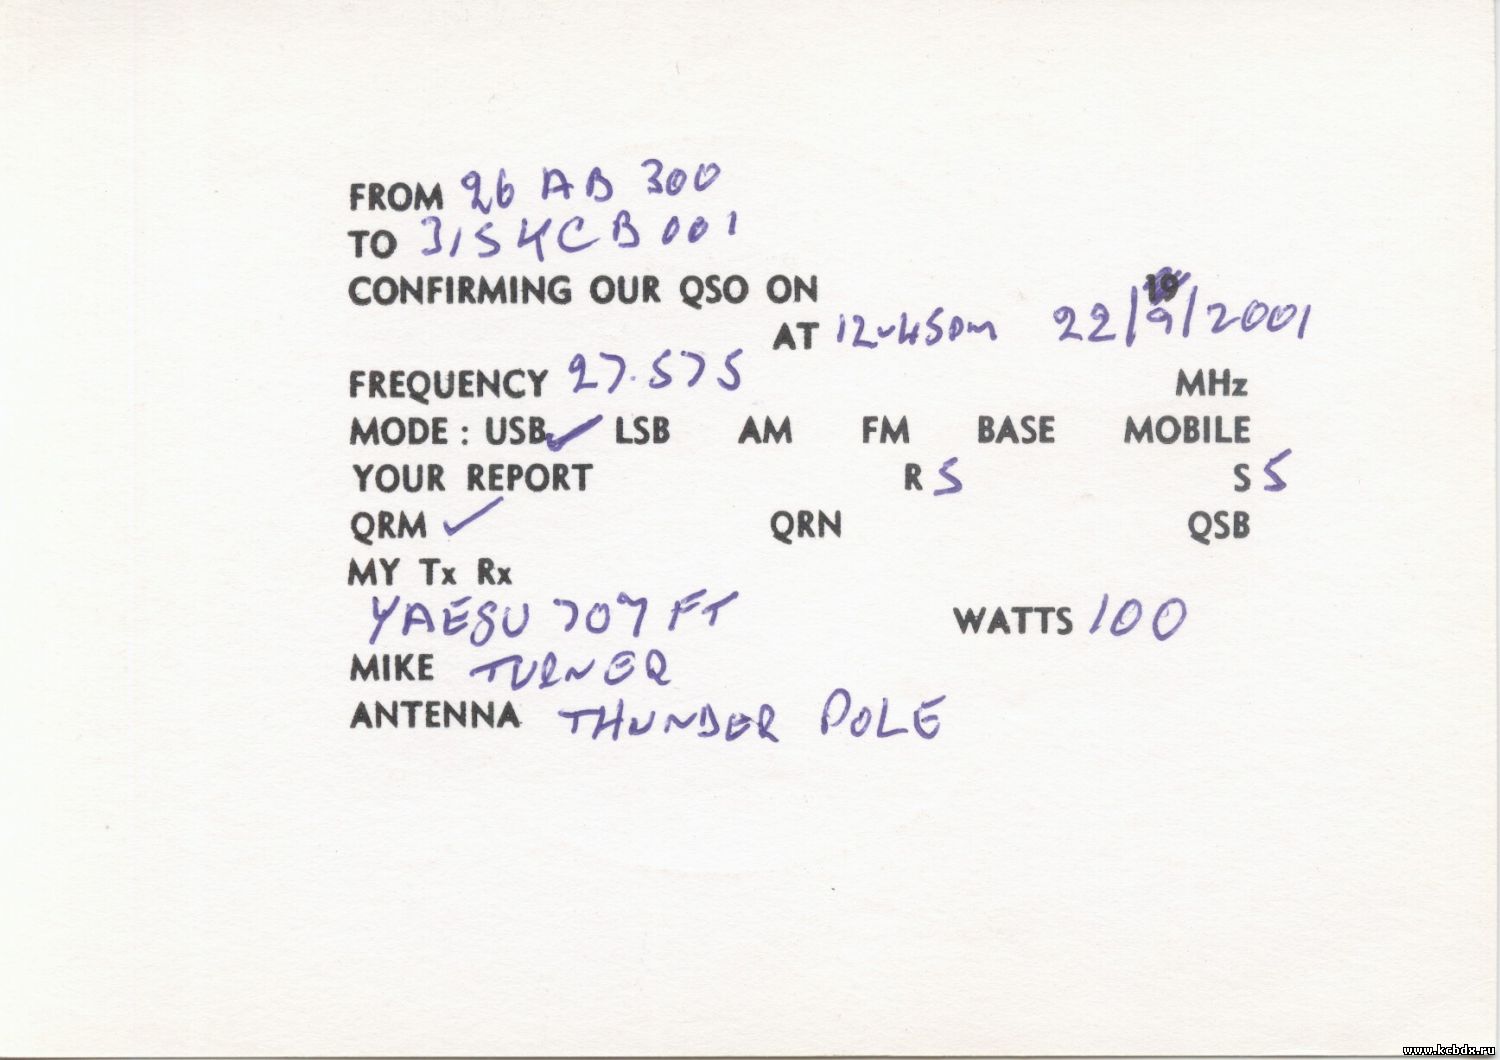 FROM 26 AB 300
TO 315 KCB 001
CONFIRMING OUR QSO ON 19
AT 12-45pm 22/9/2001
FREQUENCY 27.575 MHz
MODE : USB✓ LSB AM FM BASE MOBILE
YOUR REPORT R 5 S 5
QRM ✓ QRN QSB
MY Tx Rx
YAESU 707 FT WATTS 100
MIKE TURNER
ANTENNA THUNDER POLE
www.kcbdx.ru